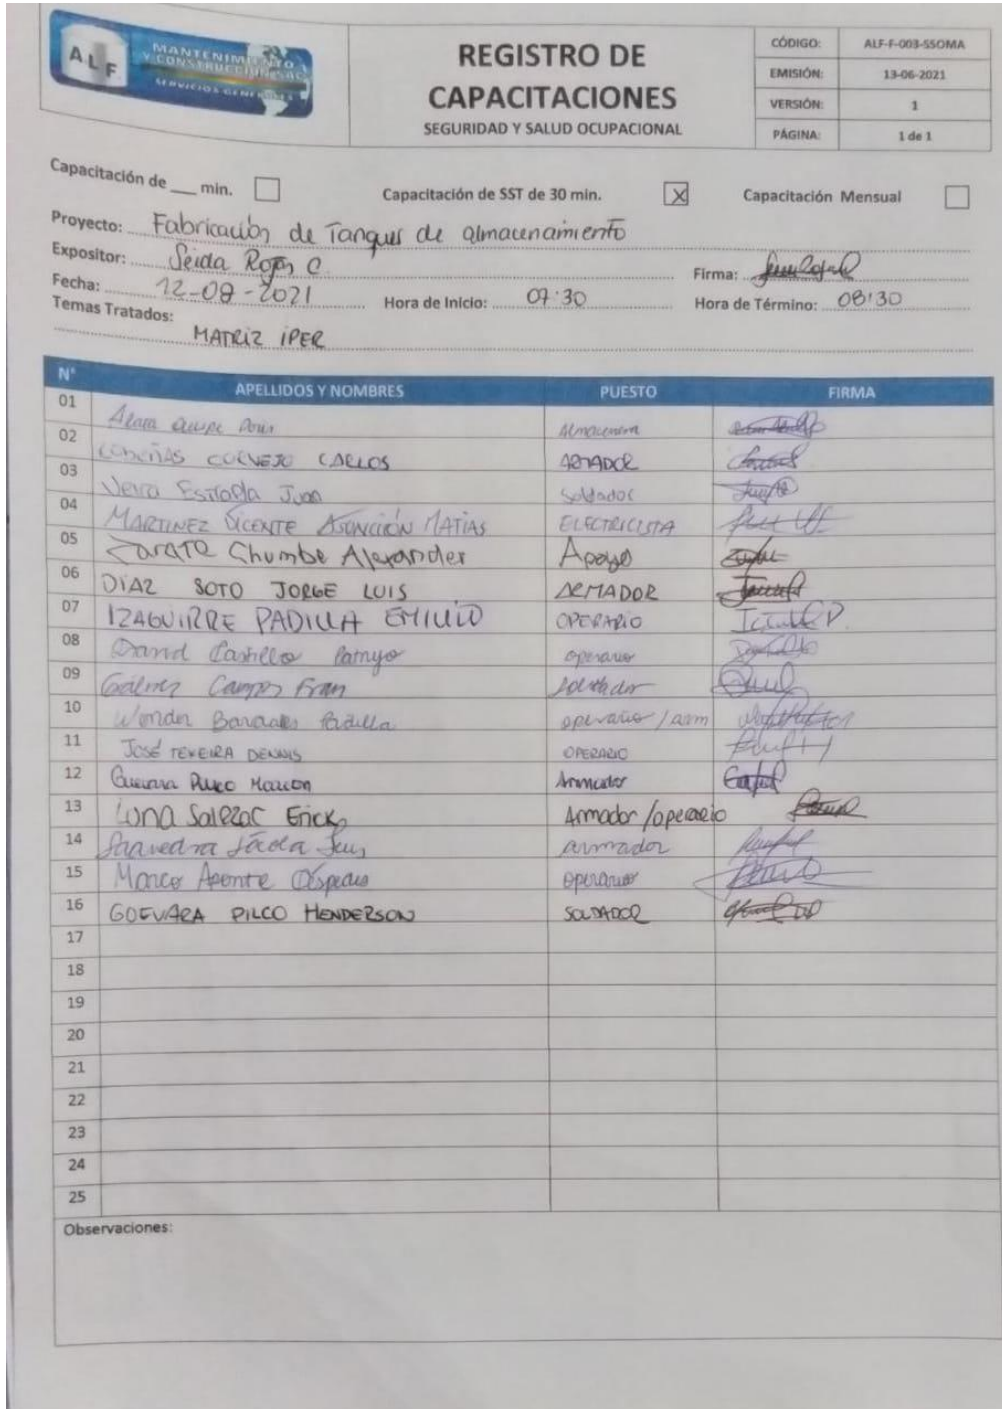 ALF
MANTENIMIENTO
Y CONSTRUCCION SAC
SERVICIOS GENERALES
REGISTRO DE
CAPACITACIONES
SEGURIDAD Y SALUD OCUPACIONAL
CÓDIGO: ALF-F-003-SSOMA
EMISIÓN: 13-06-2021
VERSIÓN: 1
PÁGINA: 1 de 1
Capacitación de ___ min. Capacitación de SST de 30 min. X Capacitación Mensual
Proyecto: Fabricación de Tanques de almacenamiento
Expositor: Seida Rojas C. Firma:
Fecha: 12-08-2021 Hora de Inicio: 07:30 Hora de Término: 08:30
Temas Tratados:
MATRIZ IPER
N° APELLIDOS Y NOMBRES PUESTO FIRMA
01 Quispe Almacenera
02 CORNEJO CARLOS ARMADOR
03 Juan Soldador
04 MARTINEZ VICENTE ASUNCIÓN MATIAS ELECTRICISTA
05 Zarate Chumbe Alexander Apoyo
06 DIAZ SOTO JORGE LUIS ARMADOR
07 IZAGUIRRE PADILLA EMILIO OPERARIO
08 David Castillo operario
09 Campos Fran soldador
10 Padilla operario / arm
11 JOSÉ TEXEIRA DENNIS OPERARIO
12 Guevara Armador
13 Luna Salazar Erick Armador / operario
14 Saavedra armador
15 Marco Aponte Céspedes operario
16 GUEVARA PILCO HENDERSON SOLDADOR
17
18
19
20
21
22
23
24
25
Observaciones: